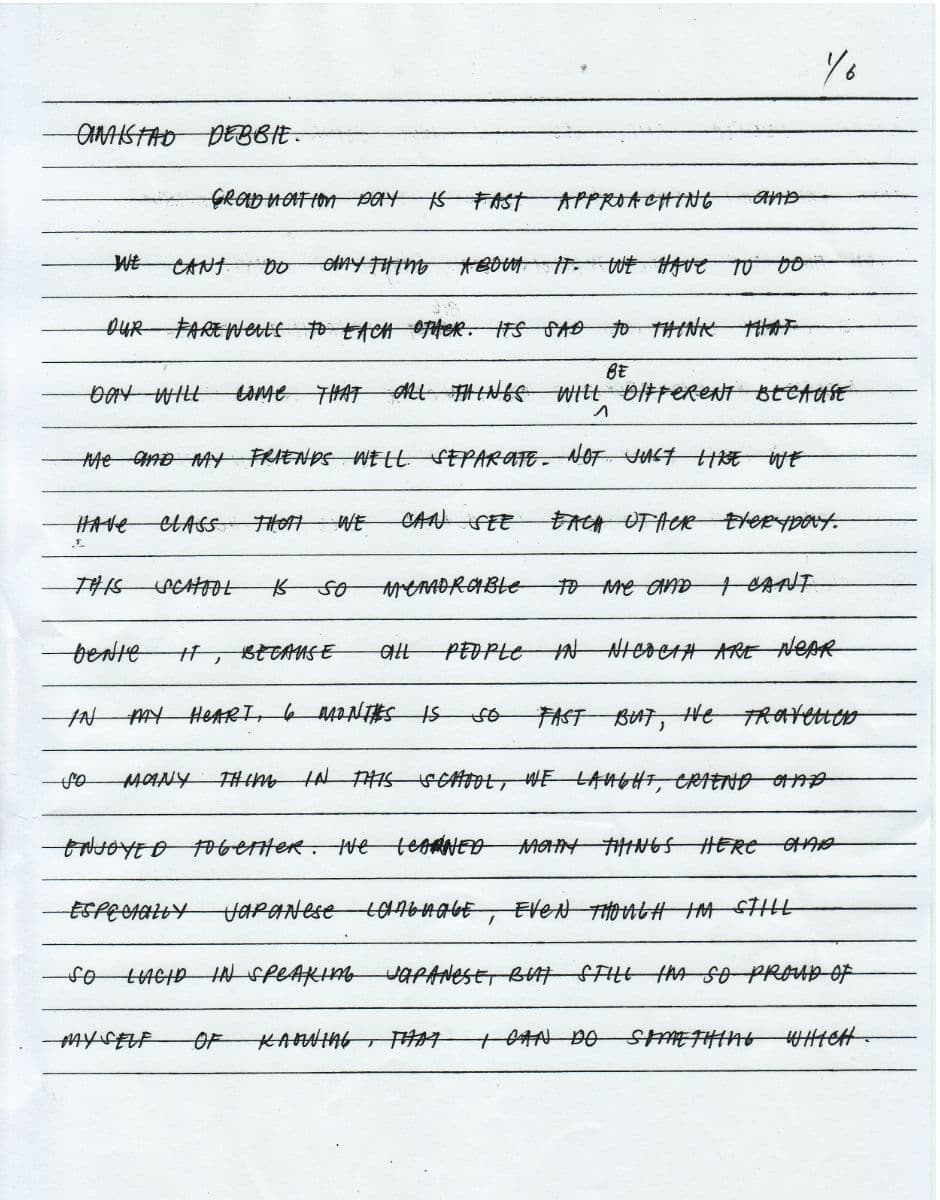 1/6
AMISTAD DEBBIE.
GRADUATION DAY IS FAST APPROACHING AND
WE CANT DO ANYTHING ABOUT IT. WE HAVE TO DO
OUR FAREWELLS TO EACH OTHER. ITS SAD TO THINK THAT
DAY WILL COME THAT ALL THINGS WILL BE DIFFERENT BECAUSE
ME AND MY FRIENDS WELL SEPARATE. NOT JUST LIKE WE
HAVE CLASS THAT WE CAN SEE EACH OTHER EVERYDAY.
THIS SCHOOL IS SO MEMORABLE TO ME AND I CANT
DENIE IT, BECAUSE ALL PEOPLE IN NICOCIA ARE NEAR
IN MY HEART, 6 MONTHS IS SO FAST BUT, WE TRAVELLED
SO MANY THING IN THIS SCHOOL, WE LAUGHT, CRIEND AND
ENJOYED TOGETHER. WE LEARNED MANY THINGS HERE AND
ESPECIALLY JAPANESE LANGUAGE, EVEN THOUGH IM STILL
SO LUCID IN SPEAKING JAPANESE, BUT STILL IM SO PROUD OF
MYSELF OF KNOWING, THAT I CAN DO SOMETHING WHICH.